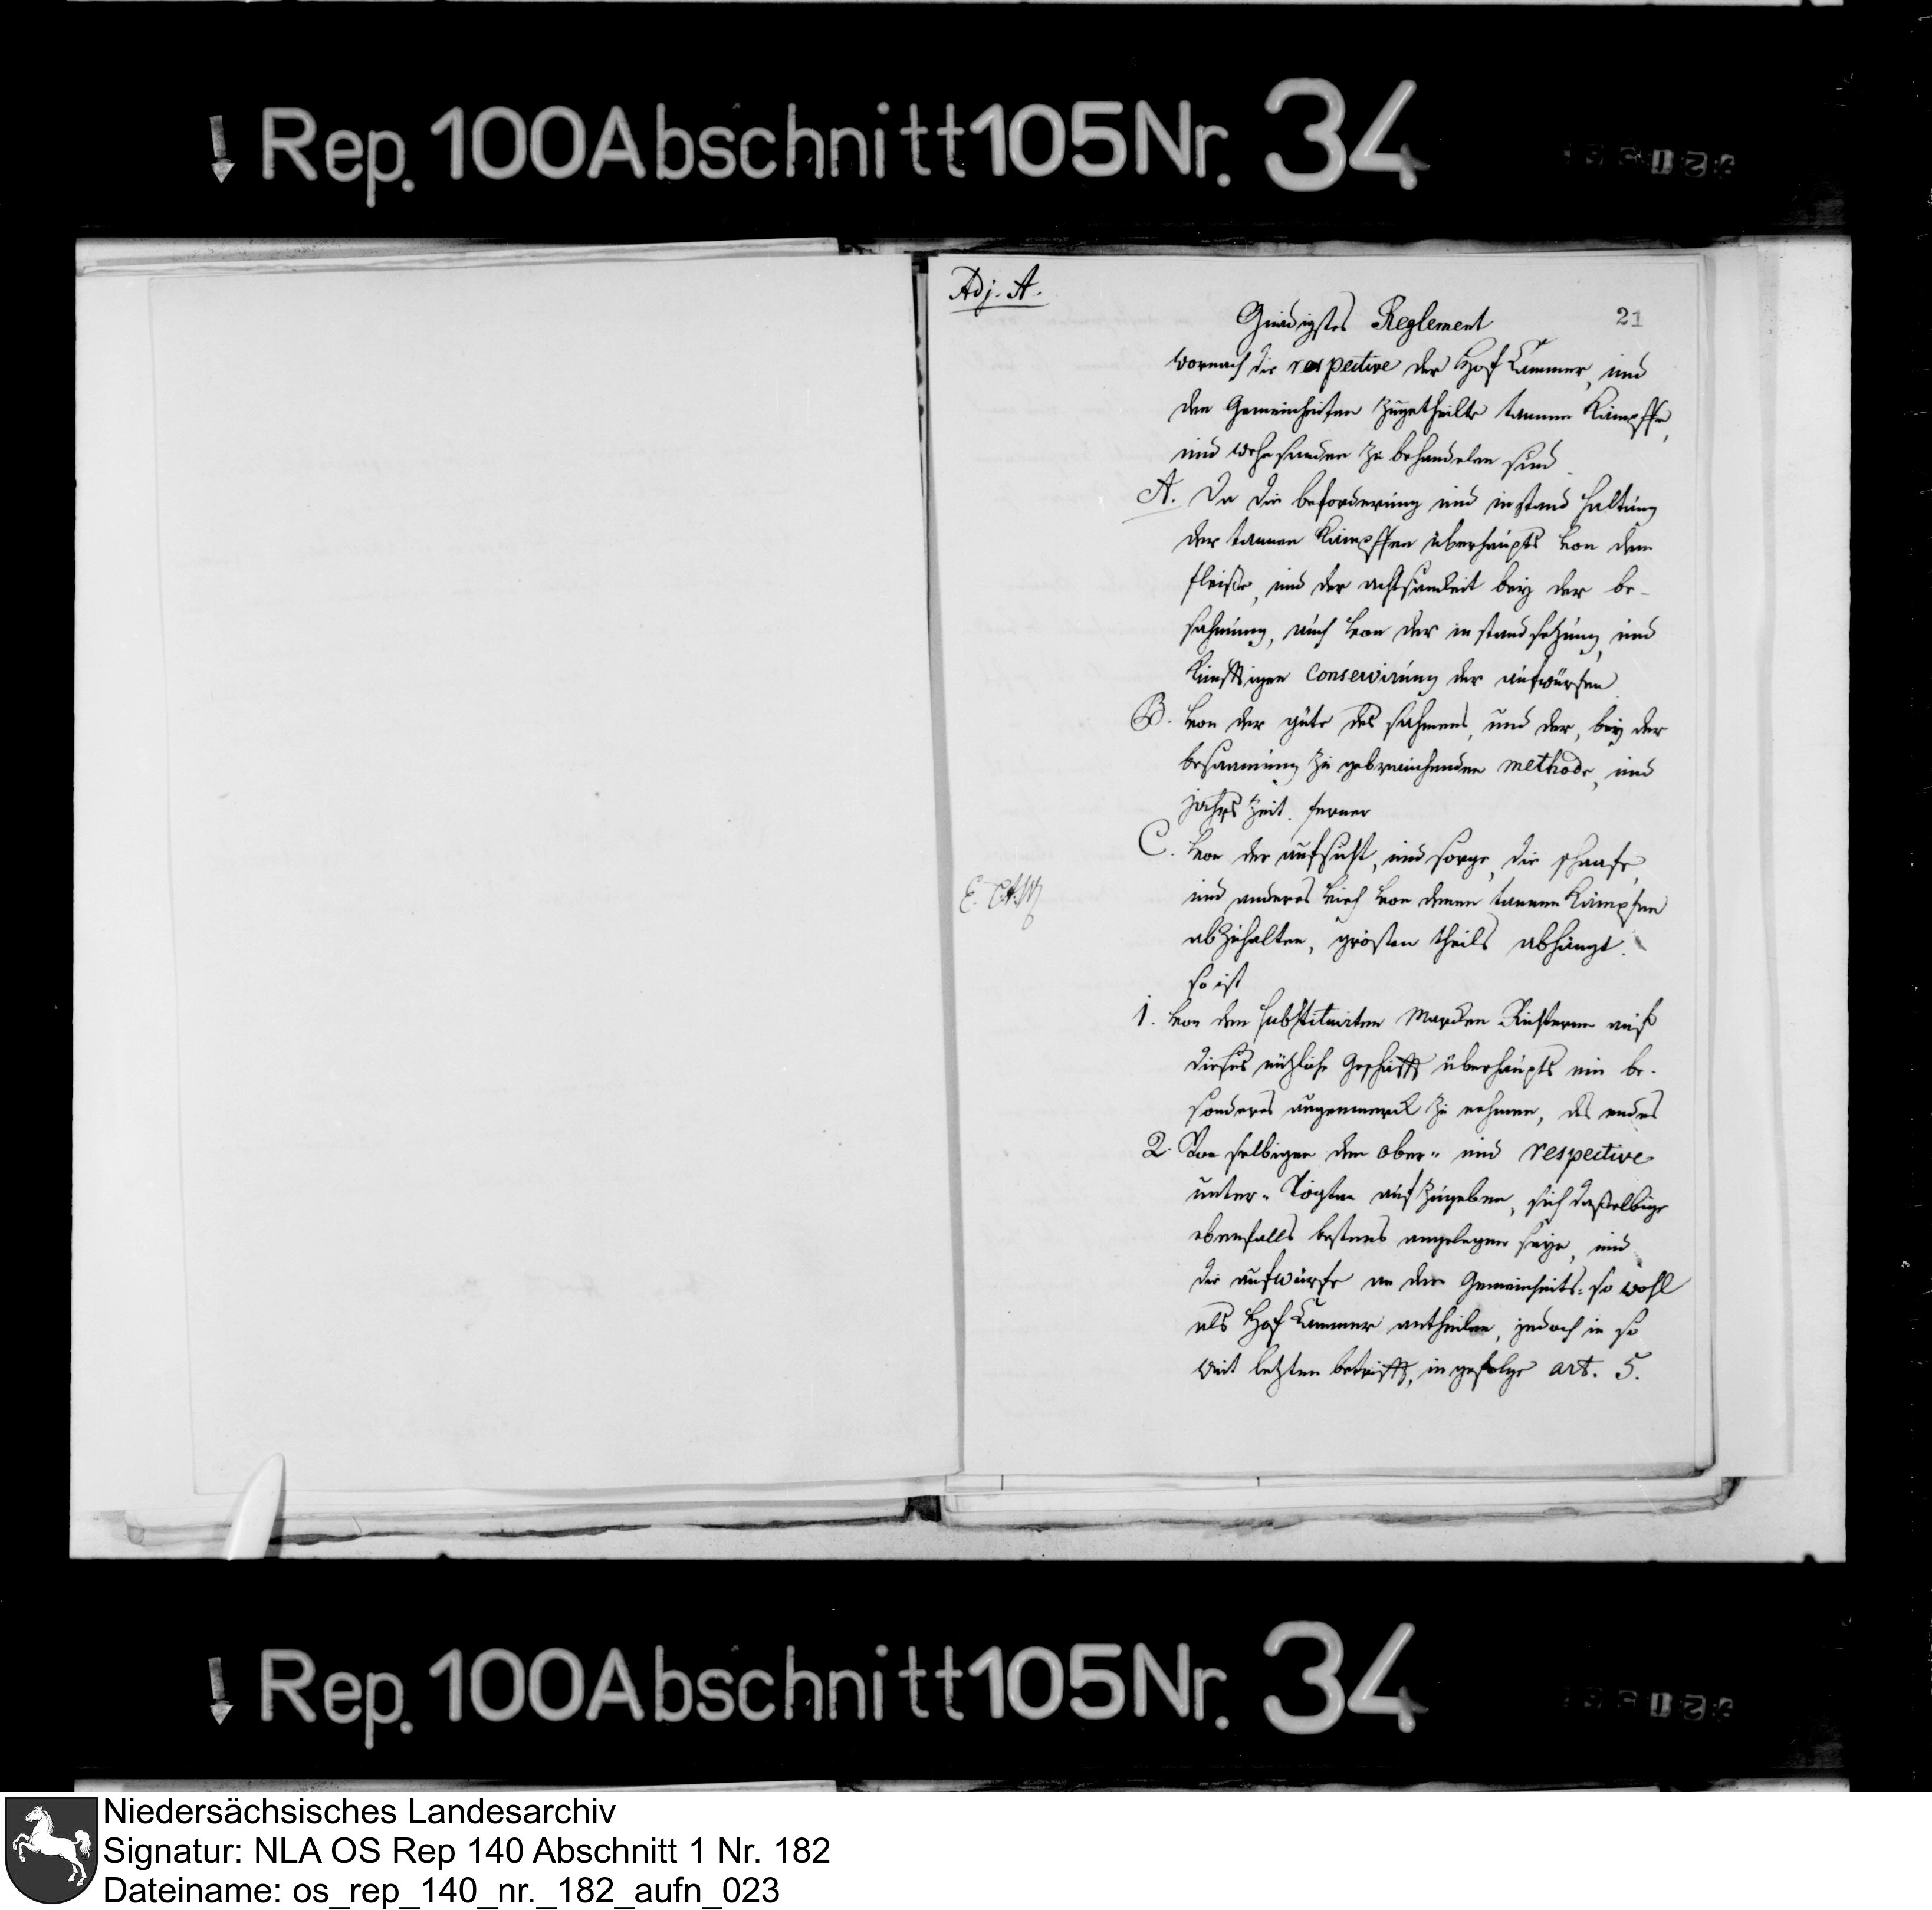 Rep. 100 Abschnitt 105 Nr. 34
Adj. A.
21
Gnädigstes Reglement
wornach die respective der Hof Cammer, und
den Gemeinheiten zugetheilte tannen Kämpffe,
und wehesanden zu behandelen sind
A. Da die beforderung und instand haltung
der tannen Kämpffen überhaupts von dem
fleiße, und der achtsamkeit bey der be-
sahmung, auch von der in stand setzung, und
künfftigen conservirung der aufwürfen
B. von der güte des sahmens, und der, bey der
besaamung zu gebrauchenden methode, und
jahrs zeit. ferner
C. von der aufsicht, und sorge, die schaafe,
und anderes vieh von denen tannen Kämpfen
abzuhalten, grösten theils abhangt.
so ist
1. von den substituirten Marken Richteren auf
dieses nützliche Geschäfft überhaupts ein be-
sonderes augenmerck zu nehmen, des endes
2. Von selbigen den ober- und respective
unter- Vögten aufzugeben, sich daßelbige
ebenfalls bestens angelegen seyn, und
die aufwürfe an den Gemeinheits- so wohl
als Hof Cammer antheilen, jedoch in so
weit letzten betrifft, in gefolge art. 5.
Rep. 100 Abschnitt 105 Nr. 34
Niedersächsisches Landesarchiv
Signatur: NLA OS Rep 140 Abschnitt 1 Nr. 182
Dateiname: os_rep_140_nr._182_aufn_023